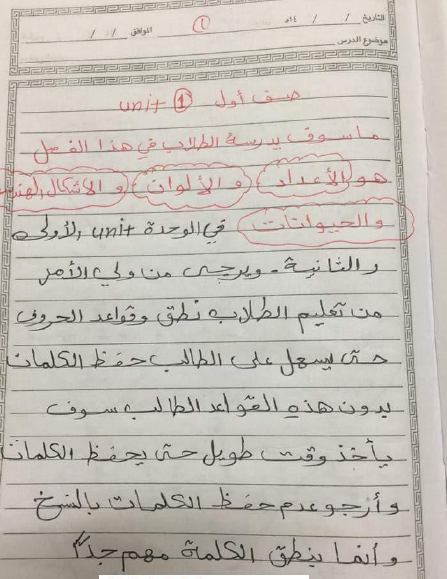 التاريخ / / ١٤هـ الموافق / /
موضوع الدرس
صف أول unit 1
ما سوف يدرسة الطلاب في هذا الفصل
هو الأعداد و الألوان و الاشكال الهند
والحيوانات في الوحدة unit الأولى
والثانية - ويرجى من ولي الأمر
من تعليم الطلاب نطق وقواعد الحروف
حتى يسهل على الطالب حفظ الكلمات
بدون هذه القواعد الطالب سوف
يأخذ وقت طويل حتى يحفظ الكلمات
وأرجو عدم حفظ الكلمات بالنسخ
وأنما ينطق الكلمة مهم جداً